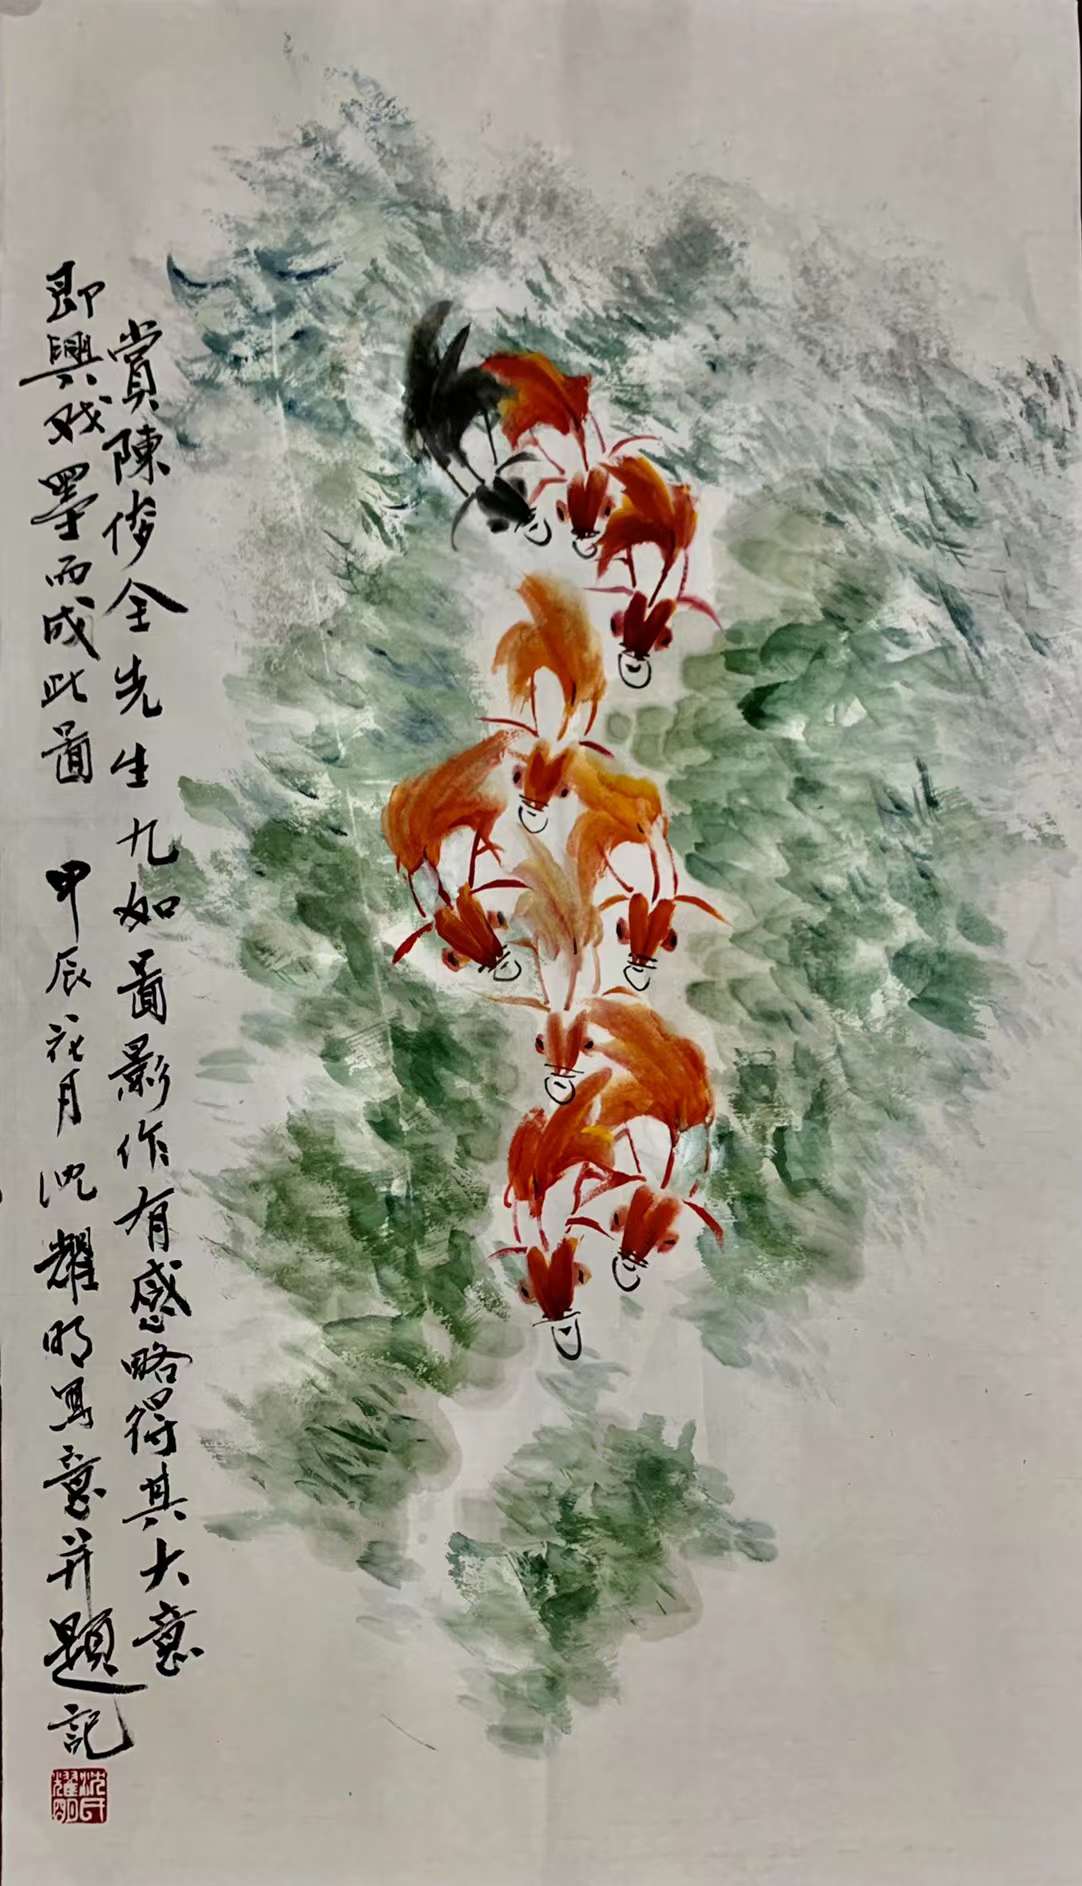 賞陳俊全先生九如圖影作有感略得其大意
即興戏墨而成此圖 甲辰花月 沈耀明寫意并題記
沈氏
耀明